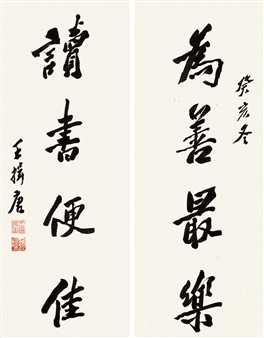 癸亥冬
為善最樂
讀書便佳
王揖唐